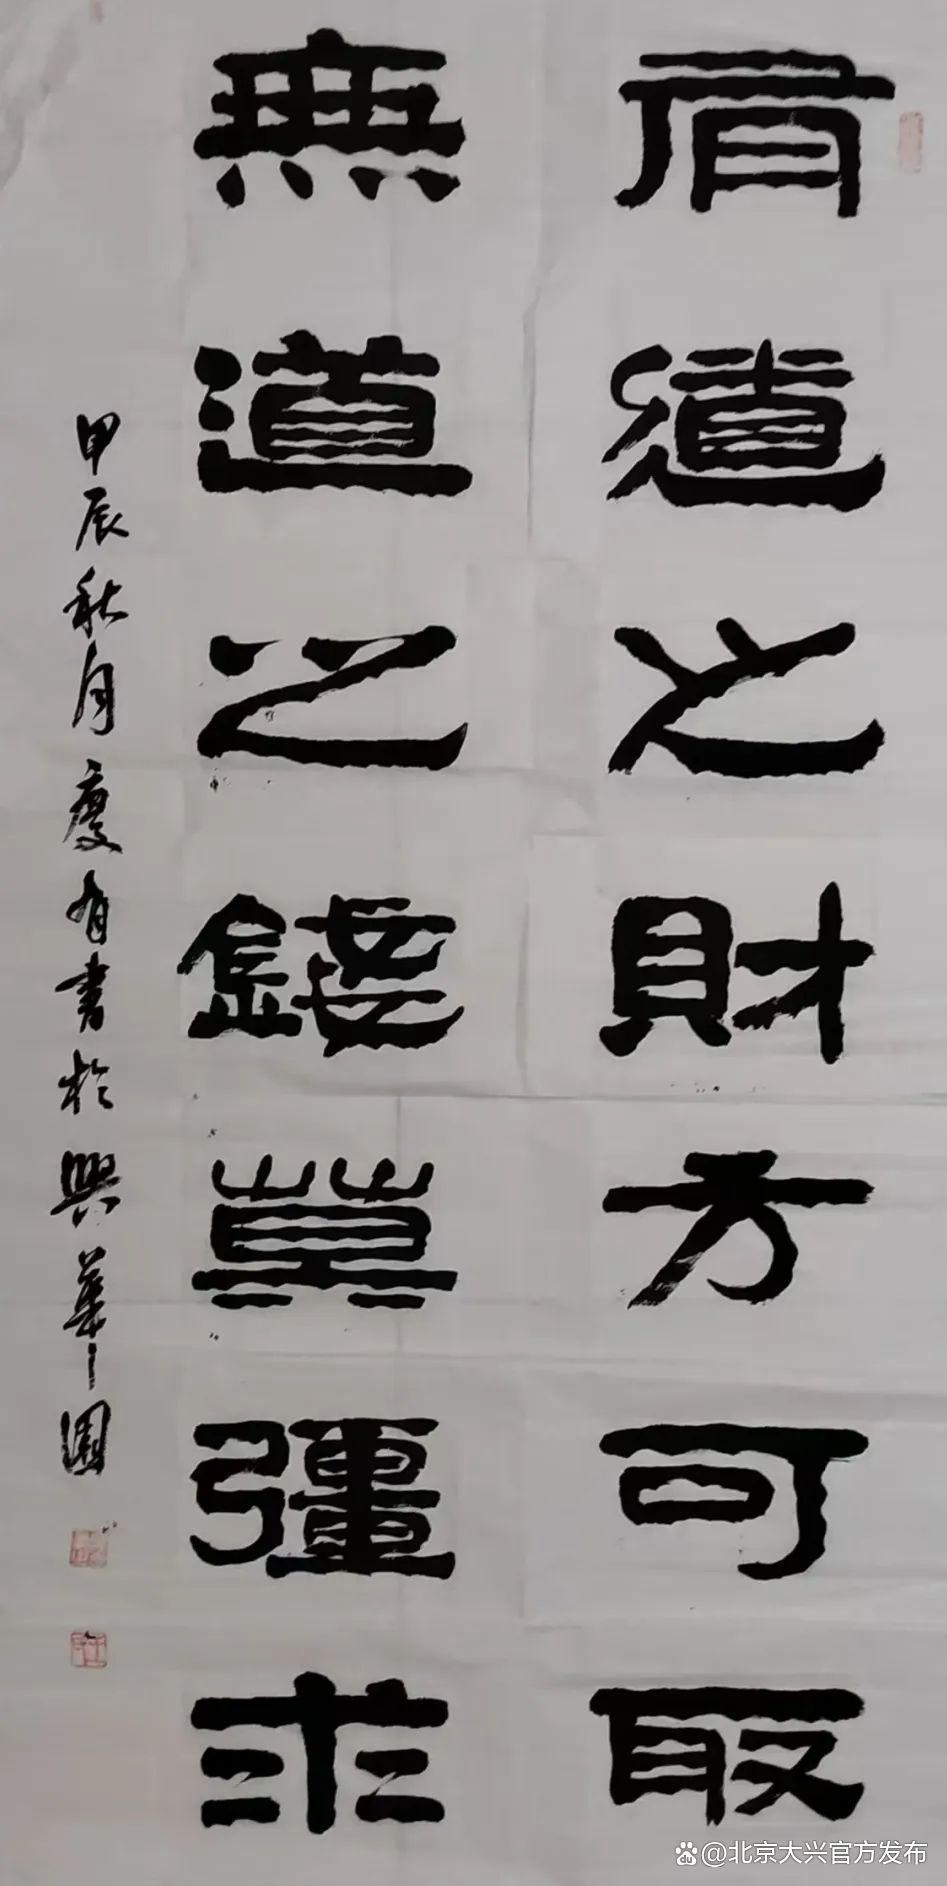 有道之財方可取
無道之錢莫彊求
甲辰秋月慶有書於興華園
@北京大兴官方发布